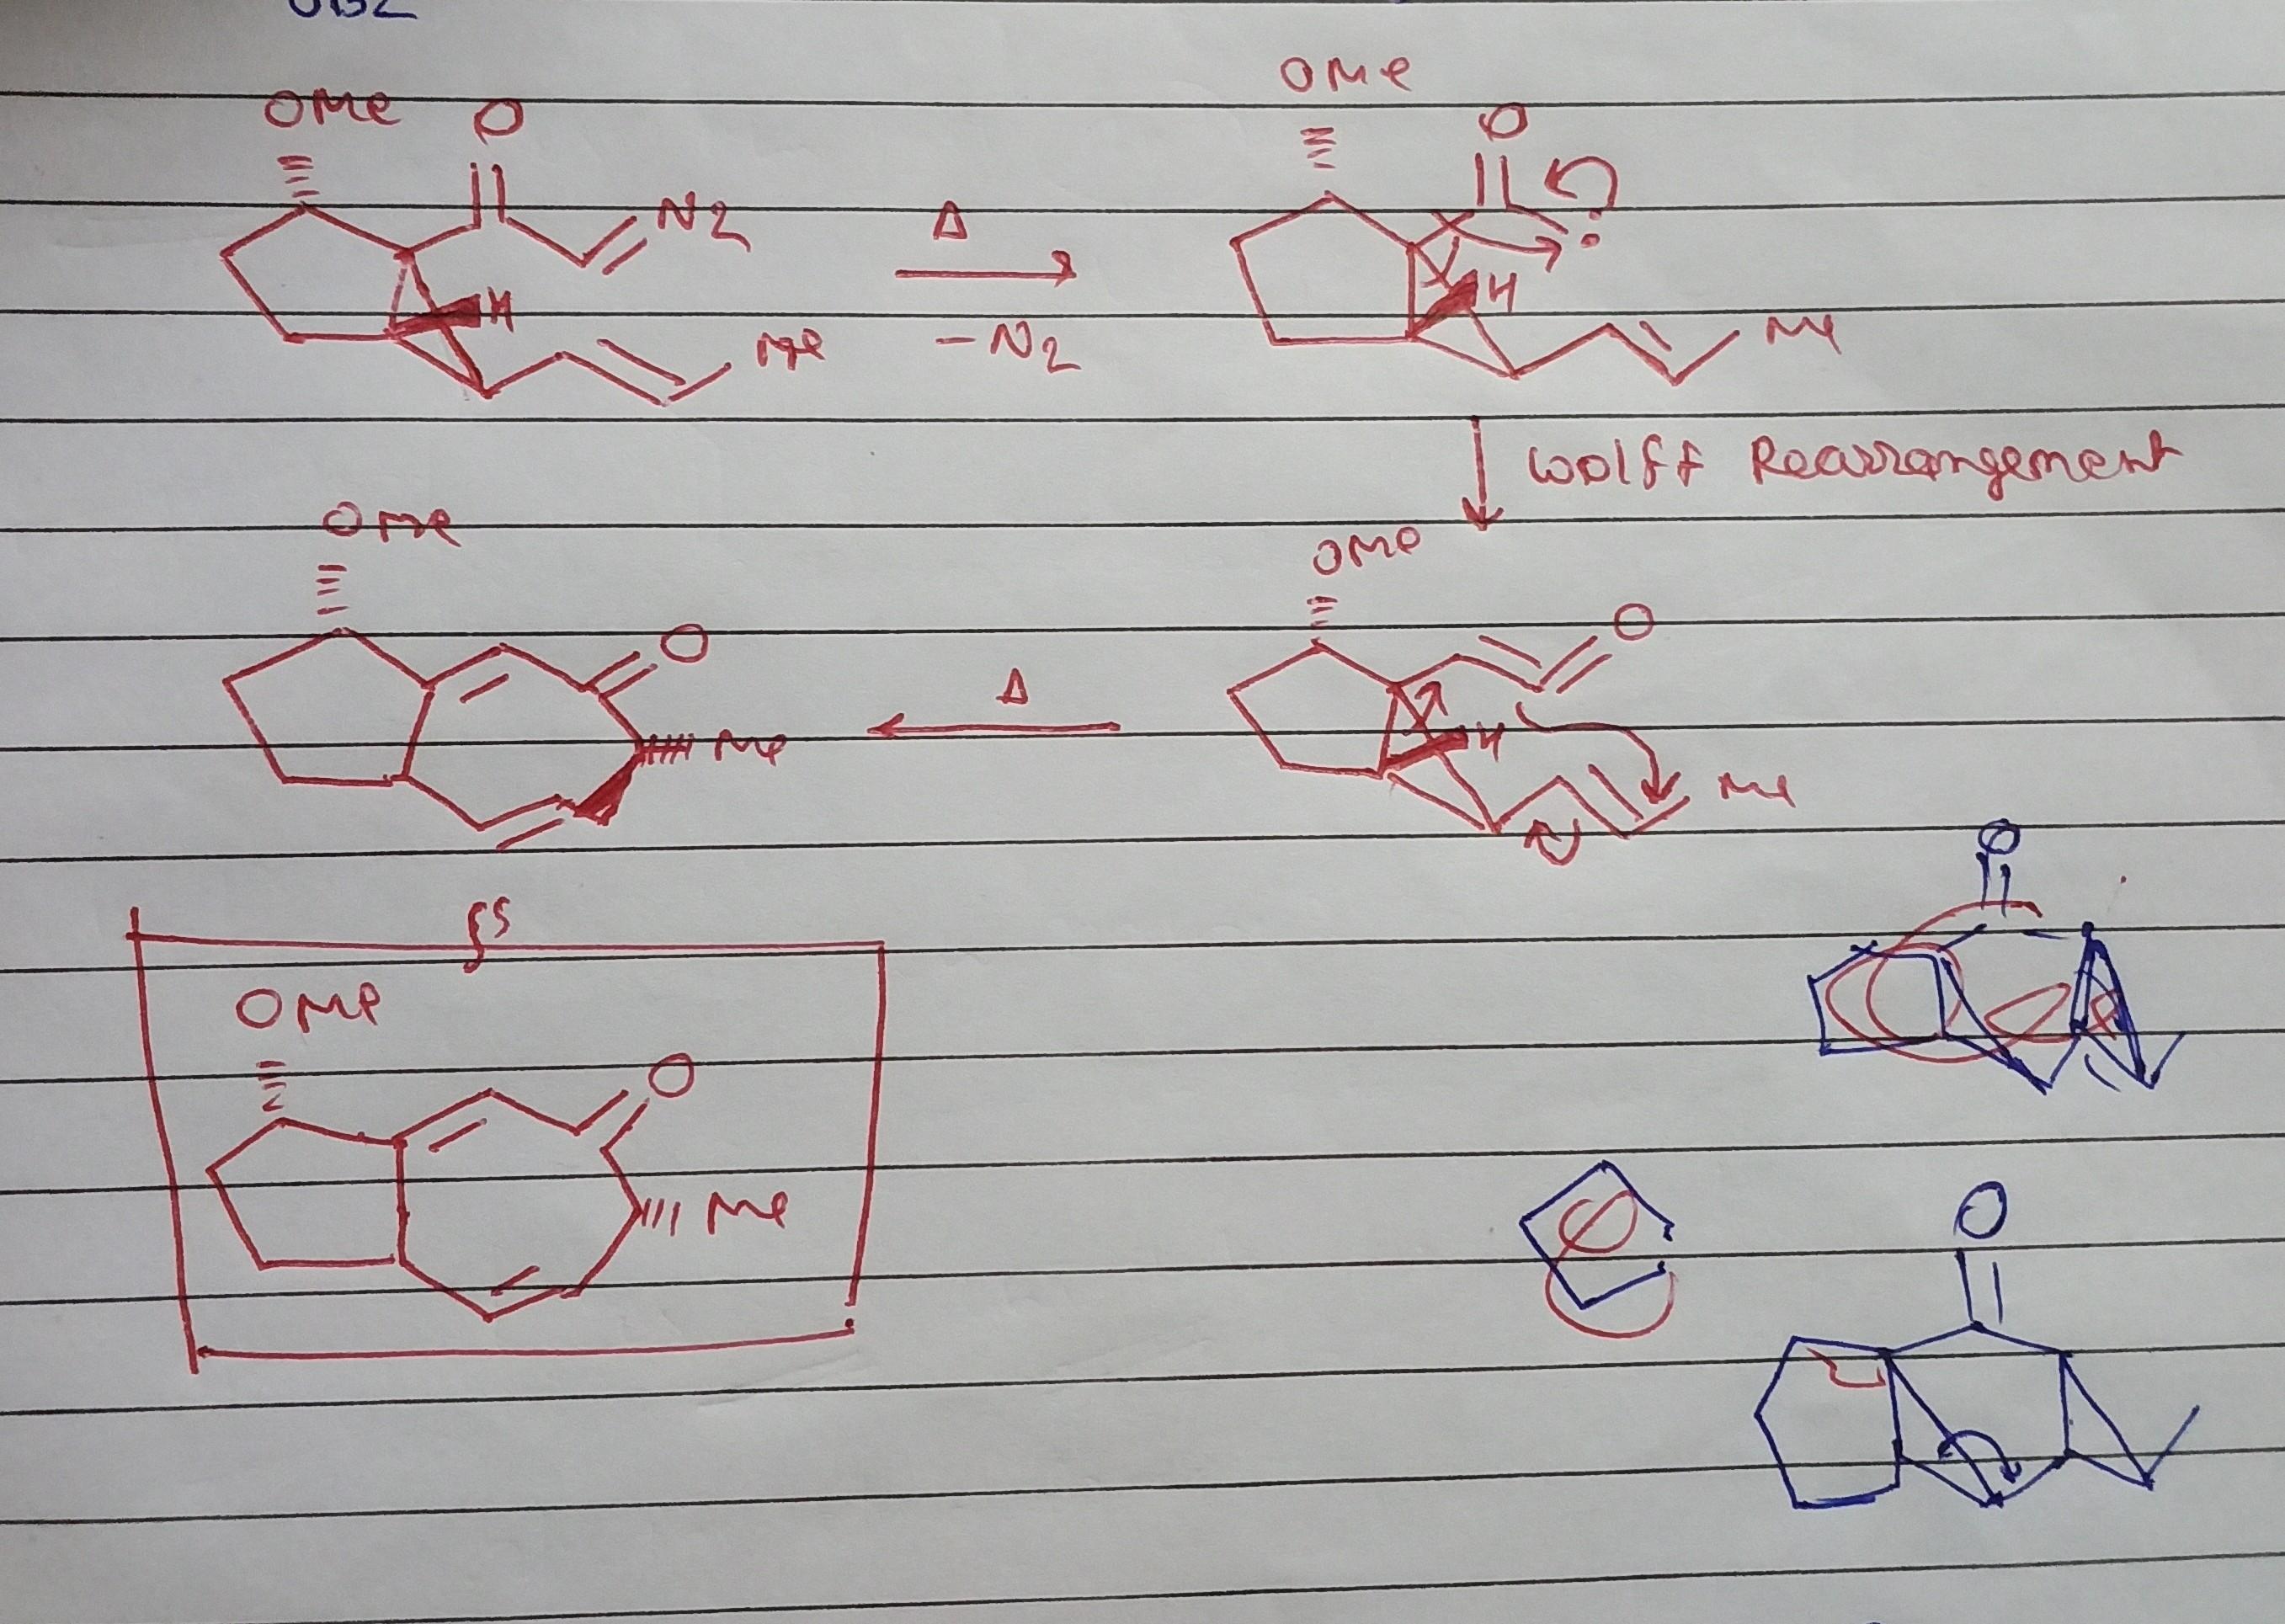 OMe O
N2
H
Me
Δ
-N2
OMe
O
H
Me
Wolff Rearrangement
OMe
O
H
Me
Δ
OMe
O
Me
OMe
O
Me
O
O